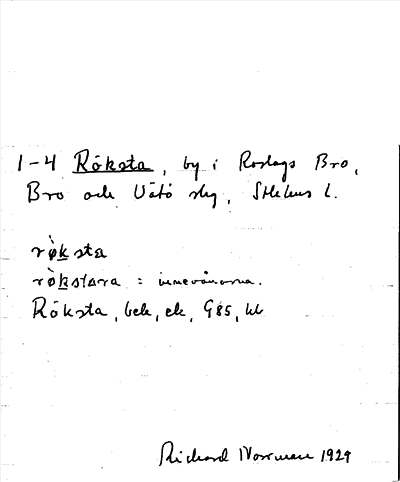 1-4 Röksta, by i Roslags Bro,
Bro och Vätö skg, Sthlms l.
rø̀ksta
rø̀kstara = innevånarna.
Röksta, bek, ek, G85, kk
Richard Norrman 1929